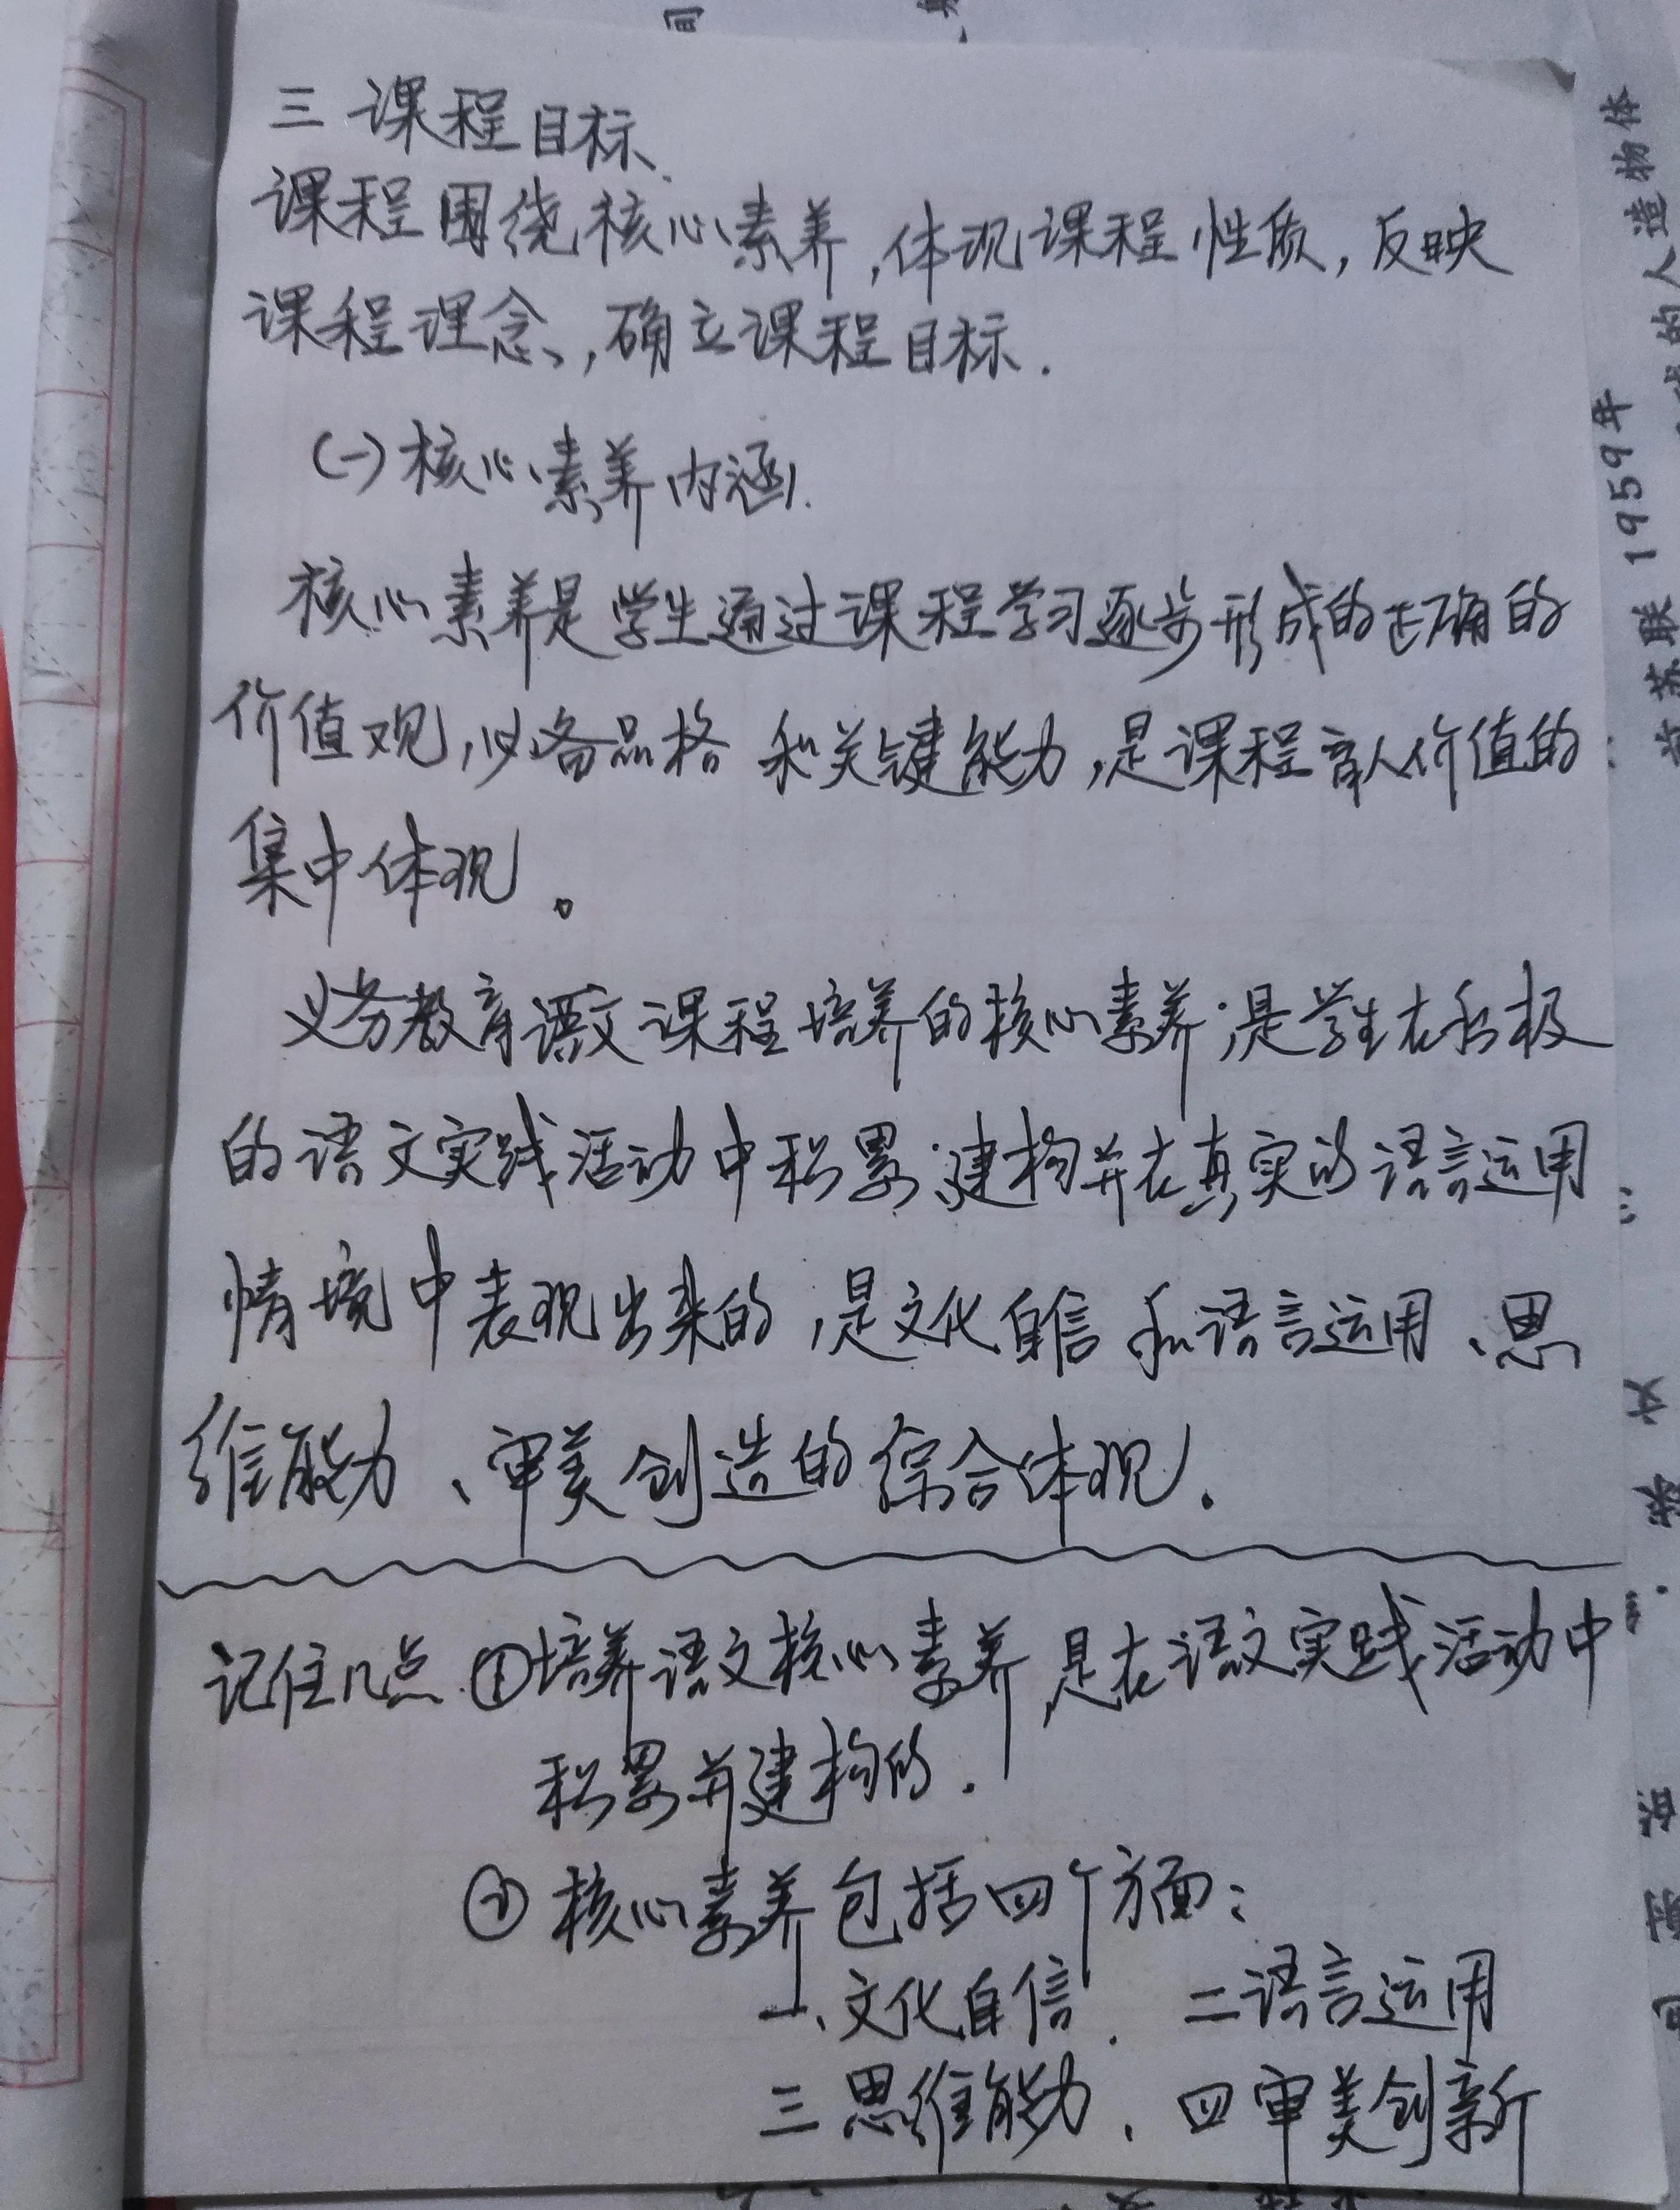 三 课程目标
课程围绕核心素养,体现课程性质,反映
课程理念,确立课程目标.
(一)核心素养内涵.
核心素养是学生通过课程学习逐步形成的正确的
价值观,必备品格和关键能力,是课程育人价值的
集中体现。
义务教育语文课程培养的核心素养,是学生在积极
的语文实践活动中积累、建构并在真实的语言运用
情境中表现出来的,是文化自信和语言运用、思
维能力、审美创造的综合体现.
记住几点.①培养语文核心素养,是在语文实践活动中
积累并建构的.
②核心素养包括四个方面:
一、文化自信. 二语言运用
三思维能力、四审美创新
的人造物体
苏联1959年